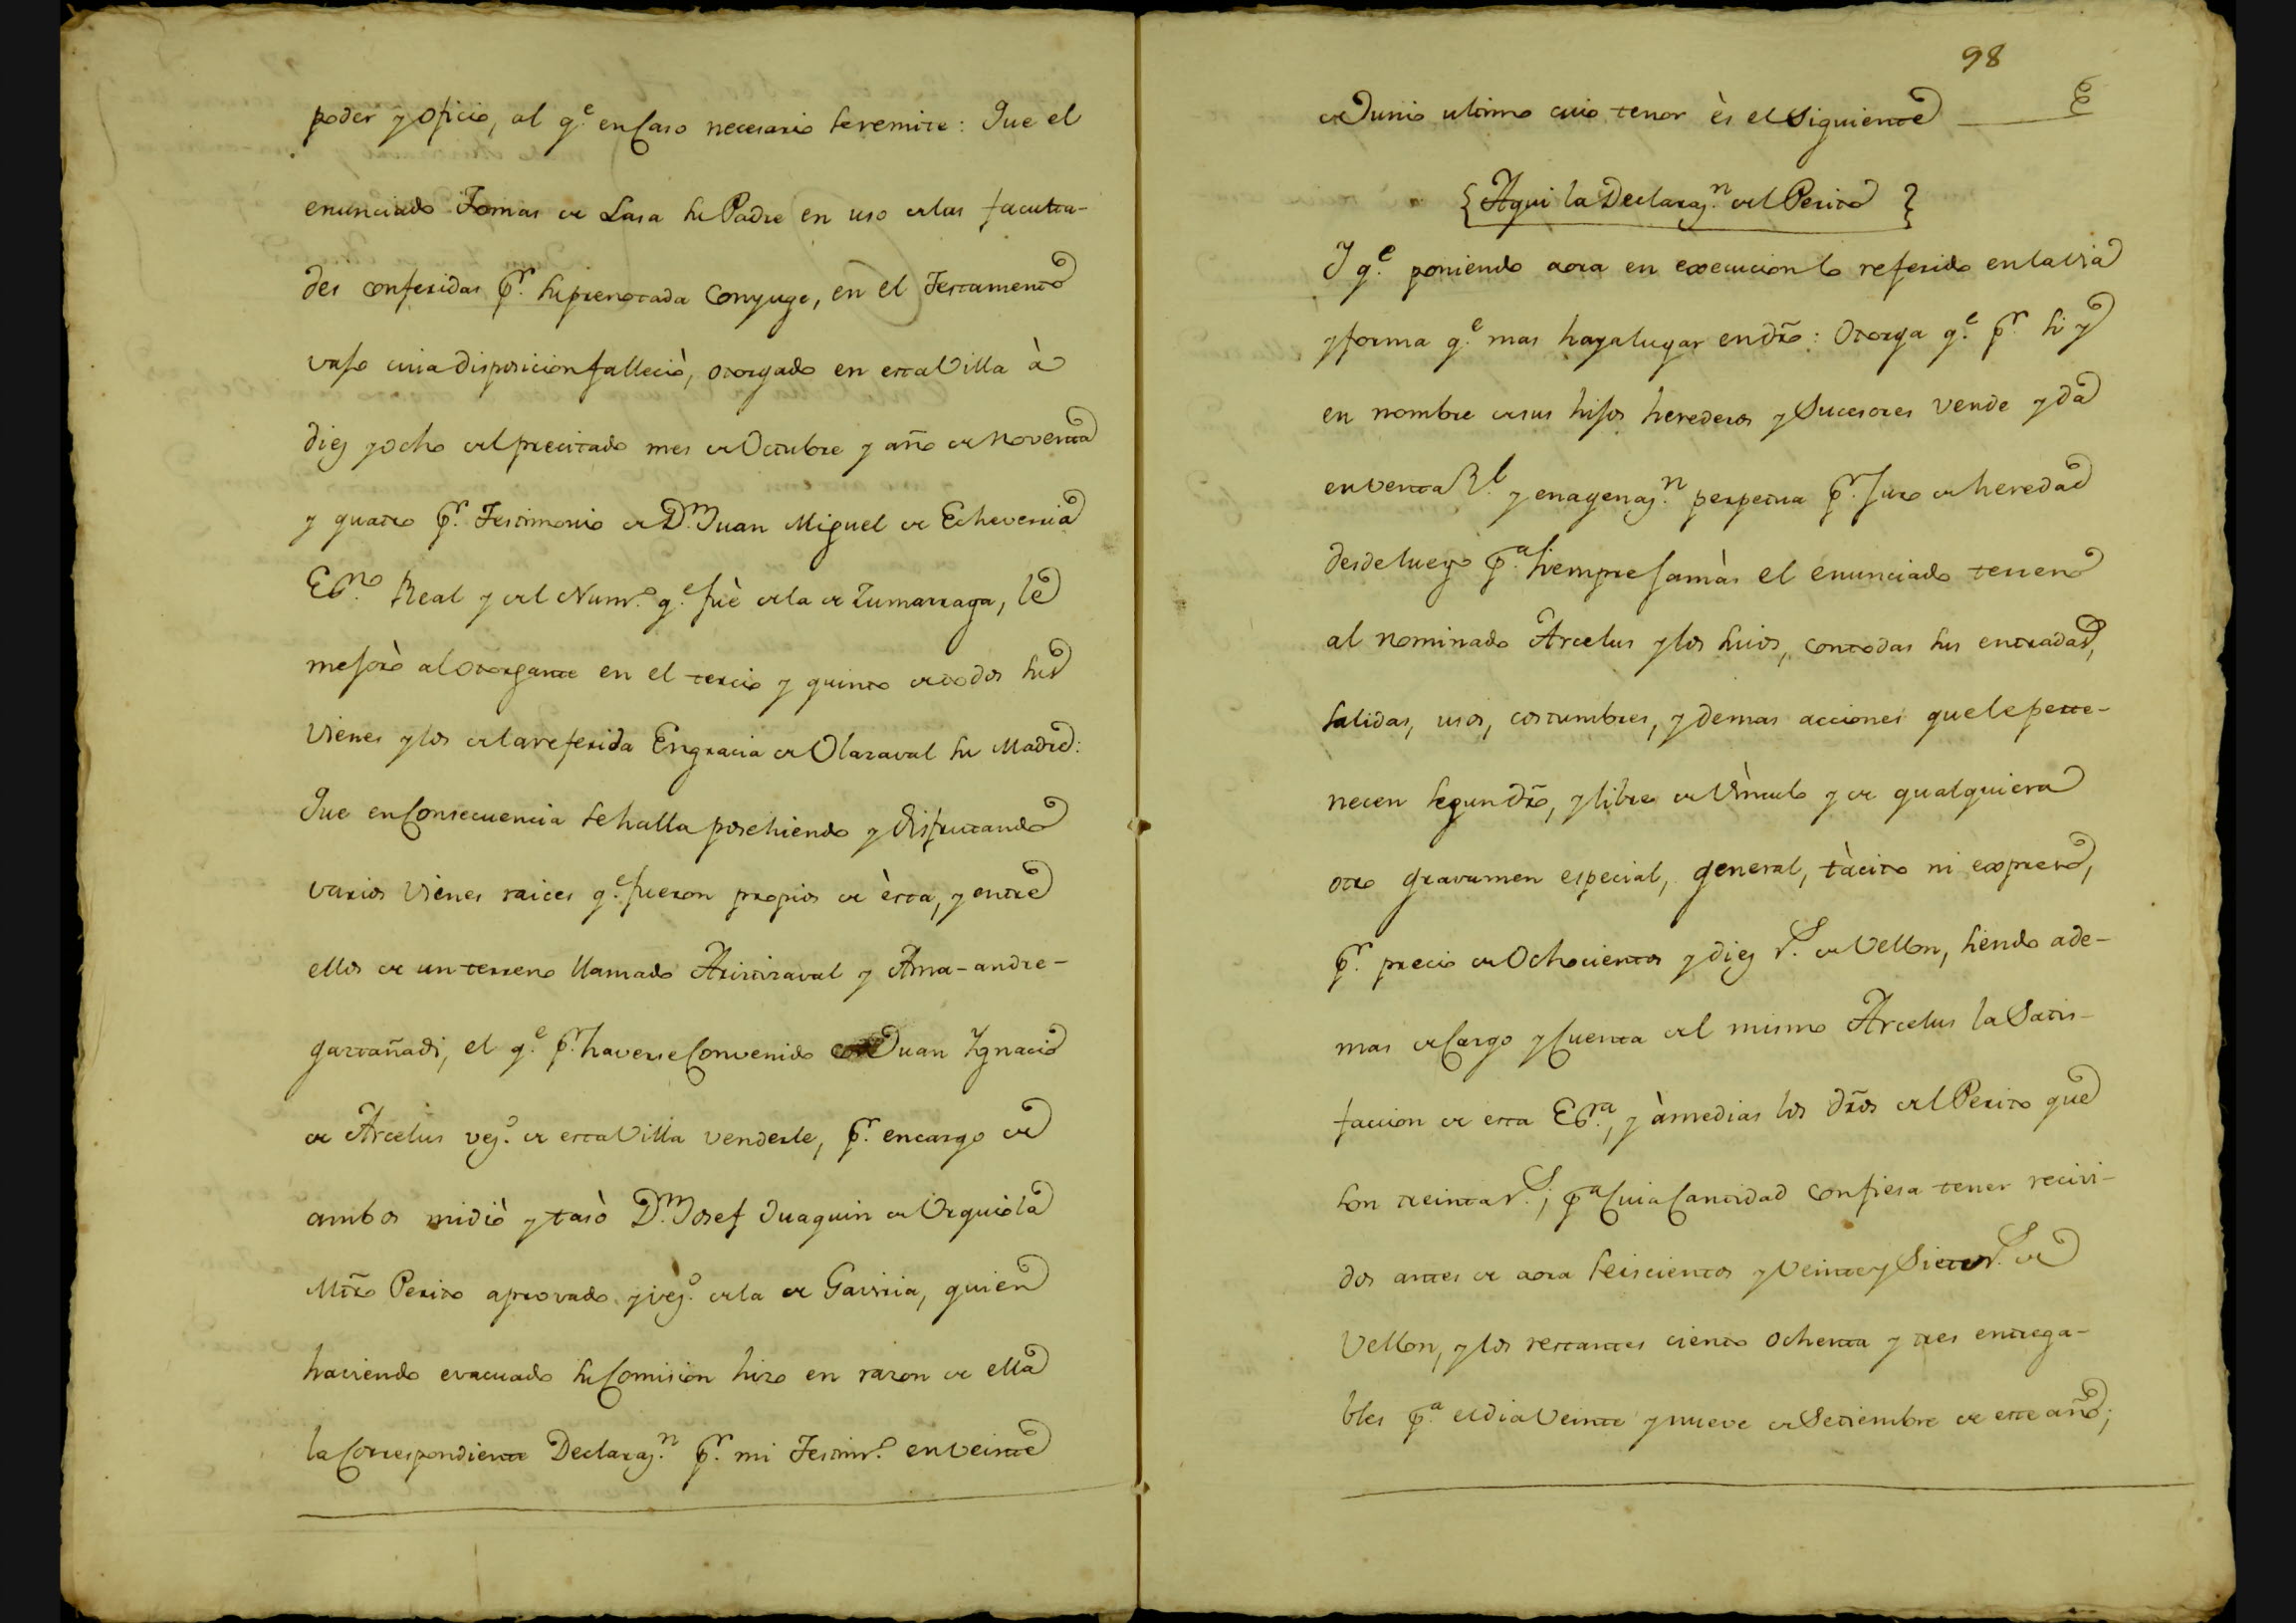 poder y oficio, al q.e en Caso necesario se remite: Que el
enunciado Tomas de Lasa su Padre en uso de las faculta-
des conferidas p.r su prenotada Conyuge, en el Testamento
vajo cuia disposicion falleciò, otorgado en esta Villa à
diez y ocho del precitado mes de Octubre y año de noventa
y quatro p.r Testimonio de D.n Juan Miguel de Echeverria
Es.no Real y del Num.o q.e fuè de la de Zumarraga, le
mejorò al otorgante en el tercio y quinto de todos sus
Vienes y los de la referida Engracia de Olazaval su Madre:
Que en Consecuencia se halla posehiendo y disfrutando
varios Vienes raices q.e fueron propios de èsta, y entre
ellos de un terreno llamado Aririzaval y Ama-andre-
gaztañadi, el q.e p.r haverse Convenido con Juan Ygnacio
de Arcelus vez.o de esta Villa venderle, p.r encargo de
ambos midiò y tasò D.n Josef Juaquin de Urquiola
Mtro Perito aprovado y vez.o de la de Gaviria, quien
haviendo evacuado su Comision hizo en razon de ella
la Correspondiente Declaraz.n p.r mi Testim.o en veinte
98
de Junio ultimo cuio tenor ès el Siguiente
{Aqui la Declaraz.n del Perito}
Y q.e poniendo aora en execucion lo referido en la via
y forma q.e mas haya lugar en dro: Otorga q.e p.r si y
en nombre de sus hijos herederos y Sucesores vende y da
en venta R.l y enagenaz.n perpetua p.r juro de heredad
desde luego p.a siempre jamàs el enunciado terreno
al nominado Arcelus y los suios, con todas sus entradas,
salidas, usos, costumbres, y demas acciones que le perte-
necen segun dro, y libre de vìnculo y de qualquiera
otro gravamen especial, general, tàcito ni expreso,
p.r precio de Ochocientos y diez r.s de Vellon, siendo ade-
mas de Cargo y Cuenta del mismo Arcelus la Satis-
faccion de esta Es.ra, y àmedias los dros del Perito que
son treinta r.s; p.a Cuia Cantidad confiesa tener recivi-
dos antes de aora seiscientos y Veinte y Siete r.s de
Vellon, y los restantes ciento ochenta y tres entrega-
bles p.a el dia Veinte y nueve de Setiembre de este año;